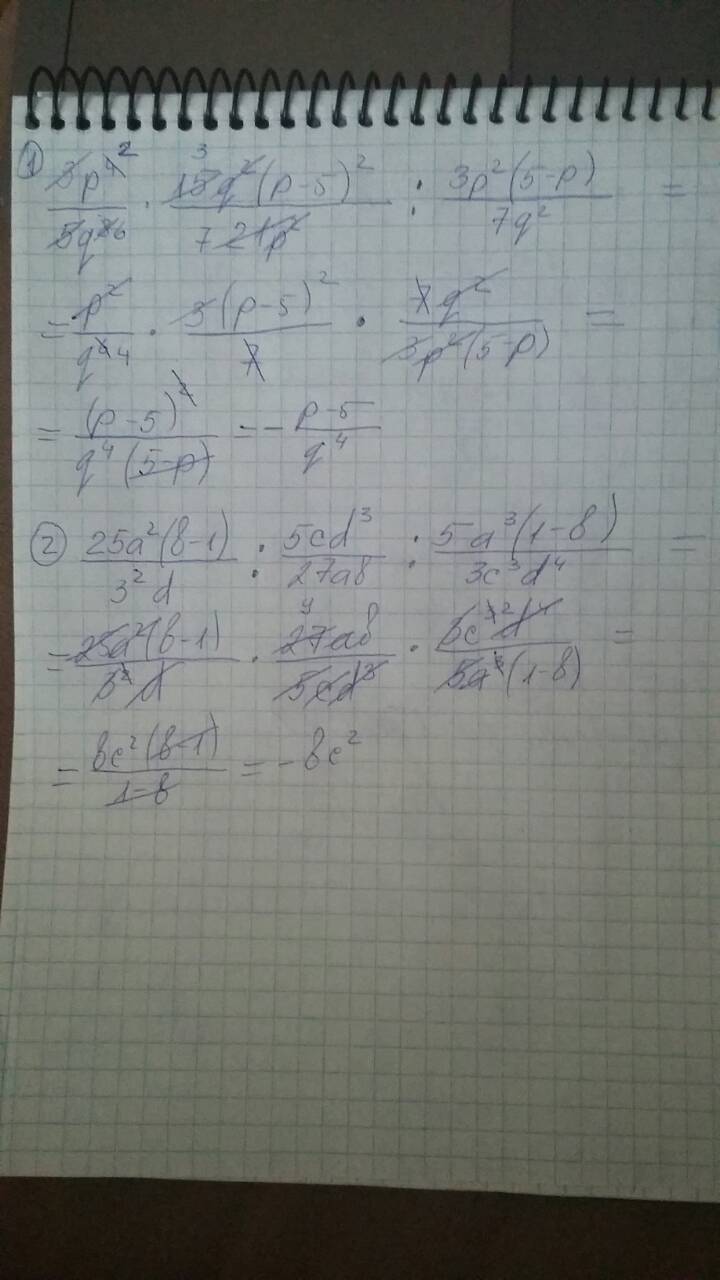 ① 3p⁴ ² / 5q⁸ ⁶ · 3 15q²(p-5)² / 7 21p² : 3p²(5-p) / 7q² =
= p² / q⁶ ⁴ · 3(p-5)² / 7 · 7q² / 3p²(5-p) =
= (p-5)² / q⁴(5-p) = - p-5 / q⁴
② 25a²(b-1) / 3²d : 5cd³ / 27ab : 5a³(1-b) / 3c³d⁴ =
= 25a²(b-1) / 3²d · 27ab / 5cd³ · 3c³ ² d⁴ / 5a³(1-b) =
= bc²(b-1) / 1-b = -bc²